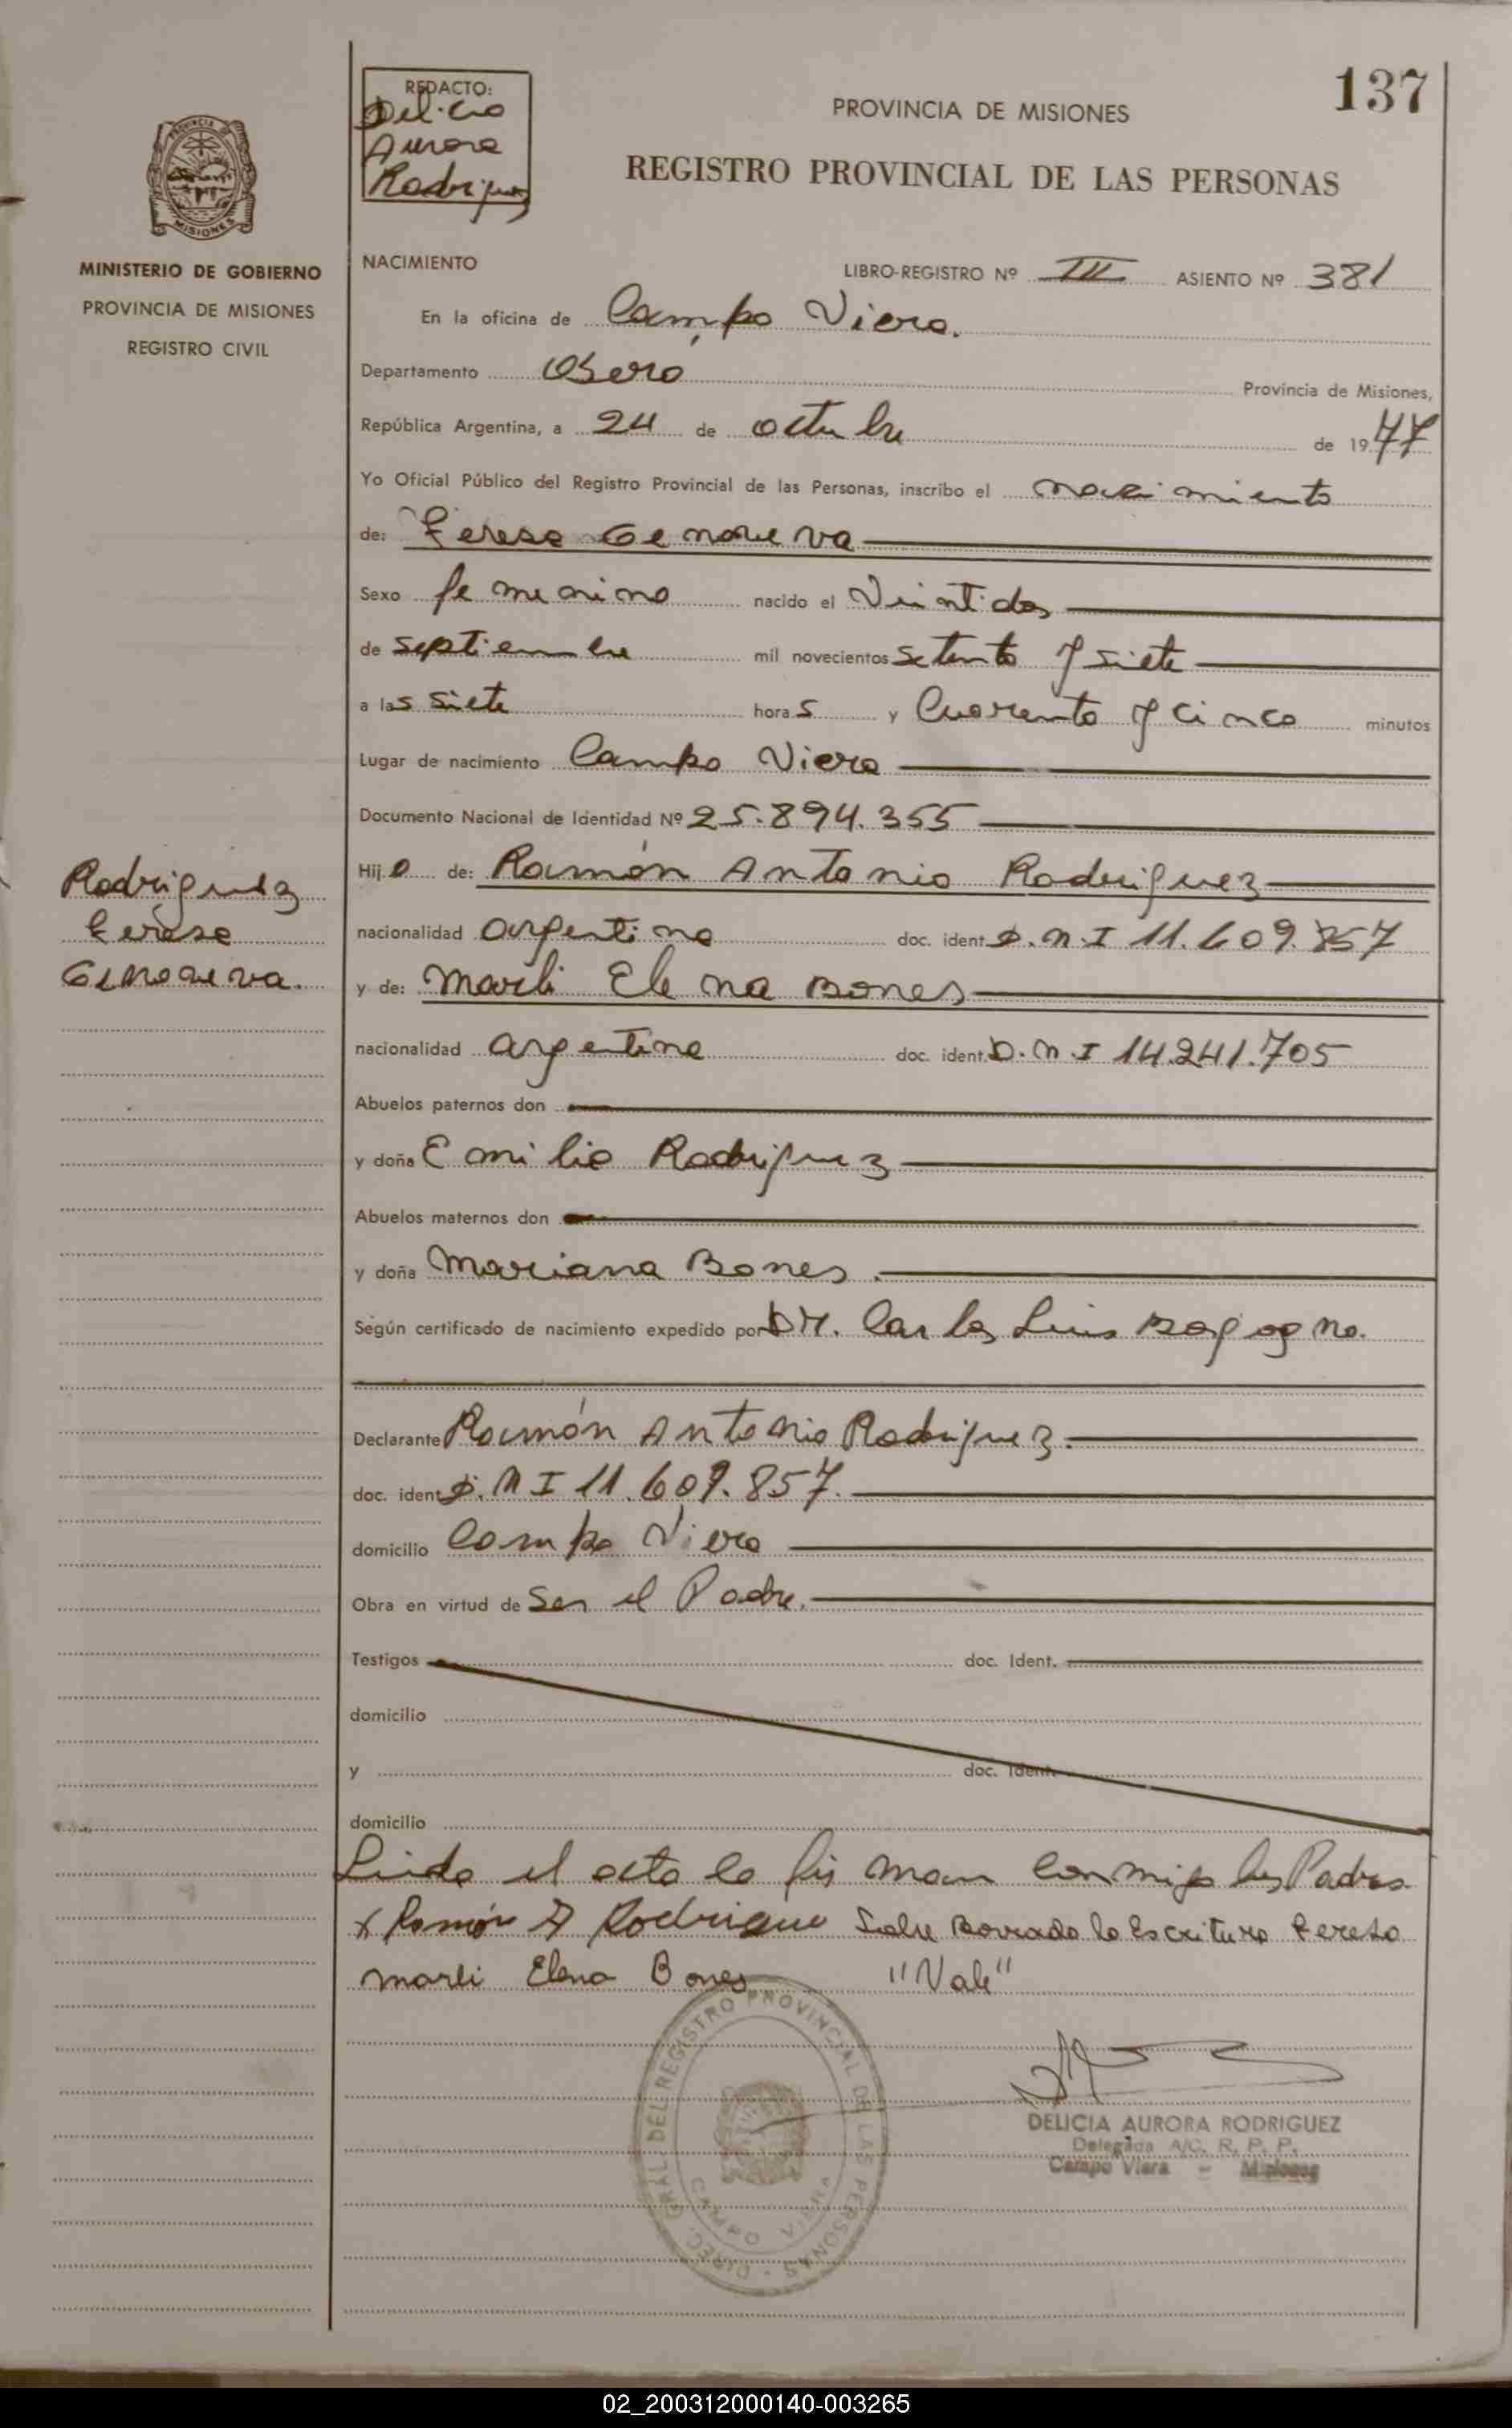 137
REDACTO:
Delicia
Aurora
Rodriguez
PROVINCIA DE MISIONES
REGISTRO PROVINCIAL DE LAS PERSONAS
MISIONES
MINISTERIO DE GOBIERNO
PROVINCIA DE MISIONES
REGISTRO CIVIL
NACIMIENTO
LIBRO-REGISTRO Nº III ASIENTO Nº 381
En la oficina de Campo Viera.
Departamento Oberá Provincia de Misiones,
República Argentina, a 24 de octubre de 1977
Yo Oficial Público del Registro Provincial de las Personas, inscribo el nacimiento
de: Teresa Genoveva
Sexo femenino nacido el Veintidos
de septiembre mil novecientos setenta y siete
a las siete horas y Cuarenta y cinco minutos
Lugar de nacimiento Campo Viera
Documento Nacional de Identidad Nº 25.894.355
Rodriguez
Teresa
Genoveva.
Hija de: Ramón Antonio Rodriguez
nacionalidad argentina doc. ident. D.N.I 11.609.857
y de: Marli Elena Bones
nacionalidad argentina doc. ident. D.N.I 14.241.705
Abuelos paternos don
y doña Emilia Rodriguez
Abuelos maternos don
y doña Mariana Bones.
Según certificado de nacimiento expedido por Dr. Carlos Luis
Declarante Ramón Antonio Rodriguez.
doc. ident D.N I 11.609.857.
domicilio Campo Viera
Obra en virtud de Ser el Padre.
Testigos doc. Ident.
domicilio
y doc. Ident.
domicilio
Leida el acta la firman conmigo los Padres
x Ramón A Rodrigue Sobre Borrado lo Escritura Teresa
Marli Elena Bones "Vale"
DIREC. GRAL. DEL REGISTRO PROVINCIAL DE LAS PERSONAS
CAMPO VIERA
DELICIA AURORA RODRIGUEZ
Delegada A/C. R. P. P.
Campo Viera - Misiones
02_200312000140-003265